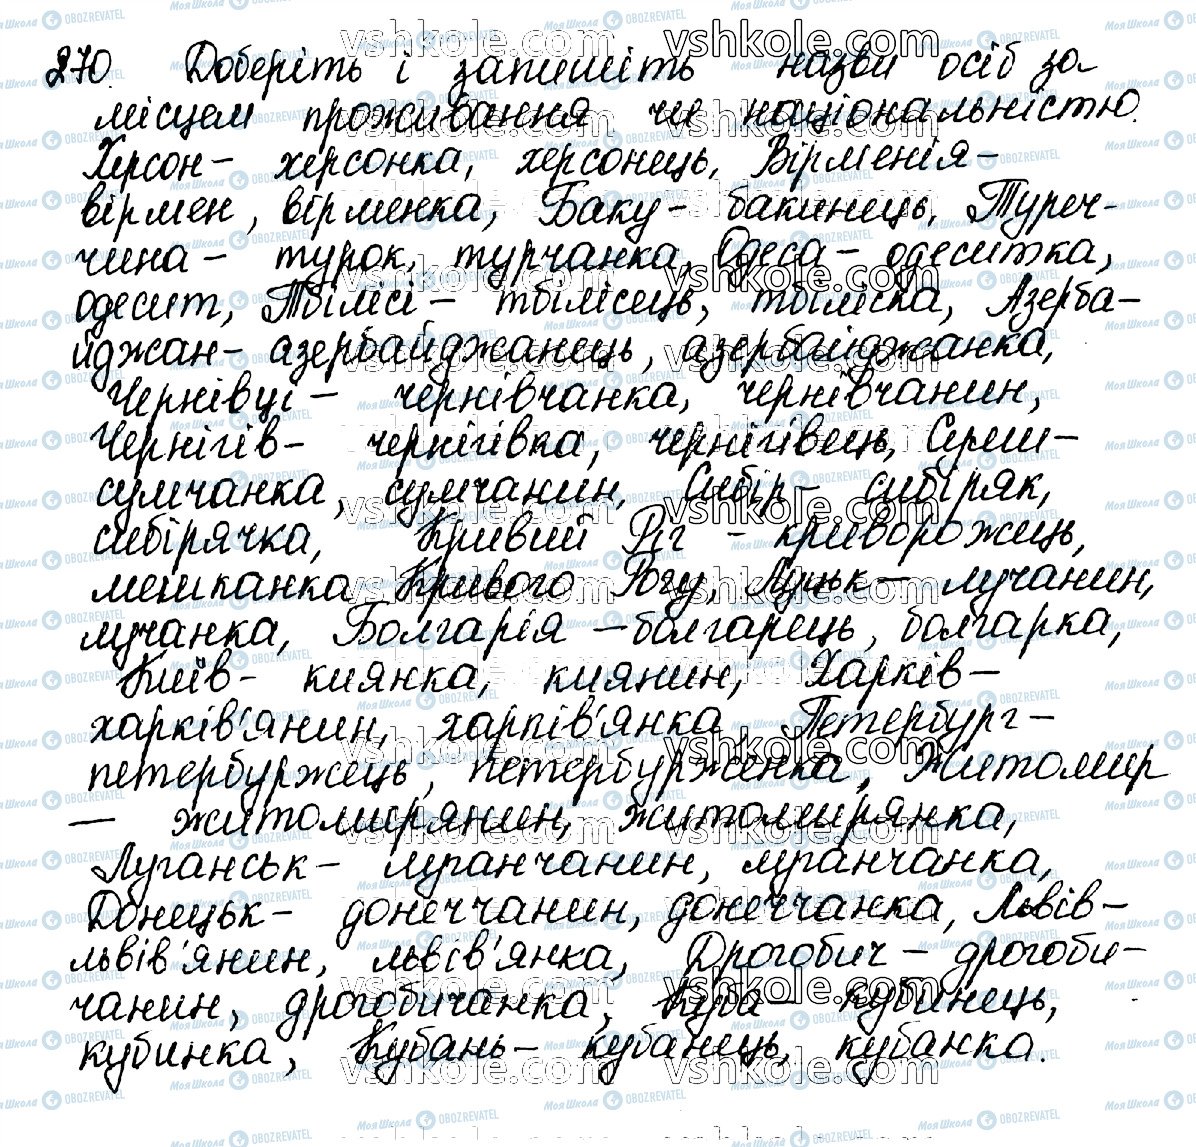 270. Доберіть і запишіть назви осіб за
місцем проживання чи національністю.
Херсон – херсонка, херсонець, Вірменія –
вірмен, вірменка, Баку – бакинець, Туреч-
чина – турок, турчанка, Одеса – одеситка,
одесит, Тбілісі – тбілісець, тбіліска, Азерба-
йджан – азербайджанець, азербайджанка,
Чернівці – чернівчанка, чернівчанин,
Чернігів – чернігівка, чернігівець, Суми –
сумчанка, сумчанин, Сибір – сибіряк,
сибірячка, Кривий Ріг – криворожець,
мешканка Кривого Рогу, Луцьк – лучанин,
лучанка, Болгарія – болгарець, болгарка,
Київ – киянка, киянин, Харків –
харків'янин, харків'янка, Петербург –
петербуржець, петербурженка, Житомир
– житомирянин, житомирянка,
Луганськ – луганчанин, луганчанка,
Донецьк – донеччанин, донеччанка, Львів –
львів'янин, львів'янка, Дрогобич – дрогоби-
чанин, дрогобичанка, Куба – кубинець,
кубинка, Кубань – кубанець, кубанка.
vshkole.com
Моя Школа OBOZREVATEL